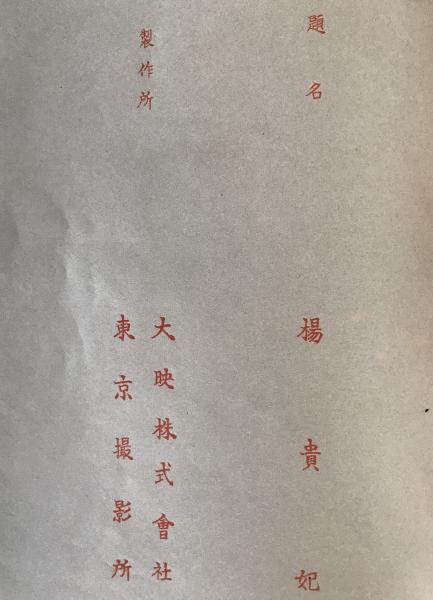 題名
楊貴妃
製作所
大映株式會社
東京撮影所